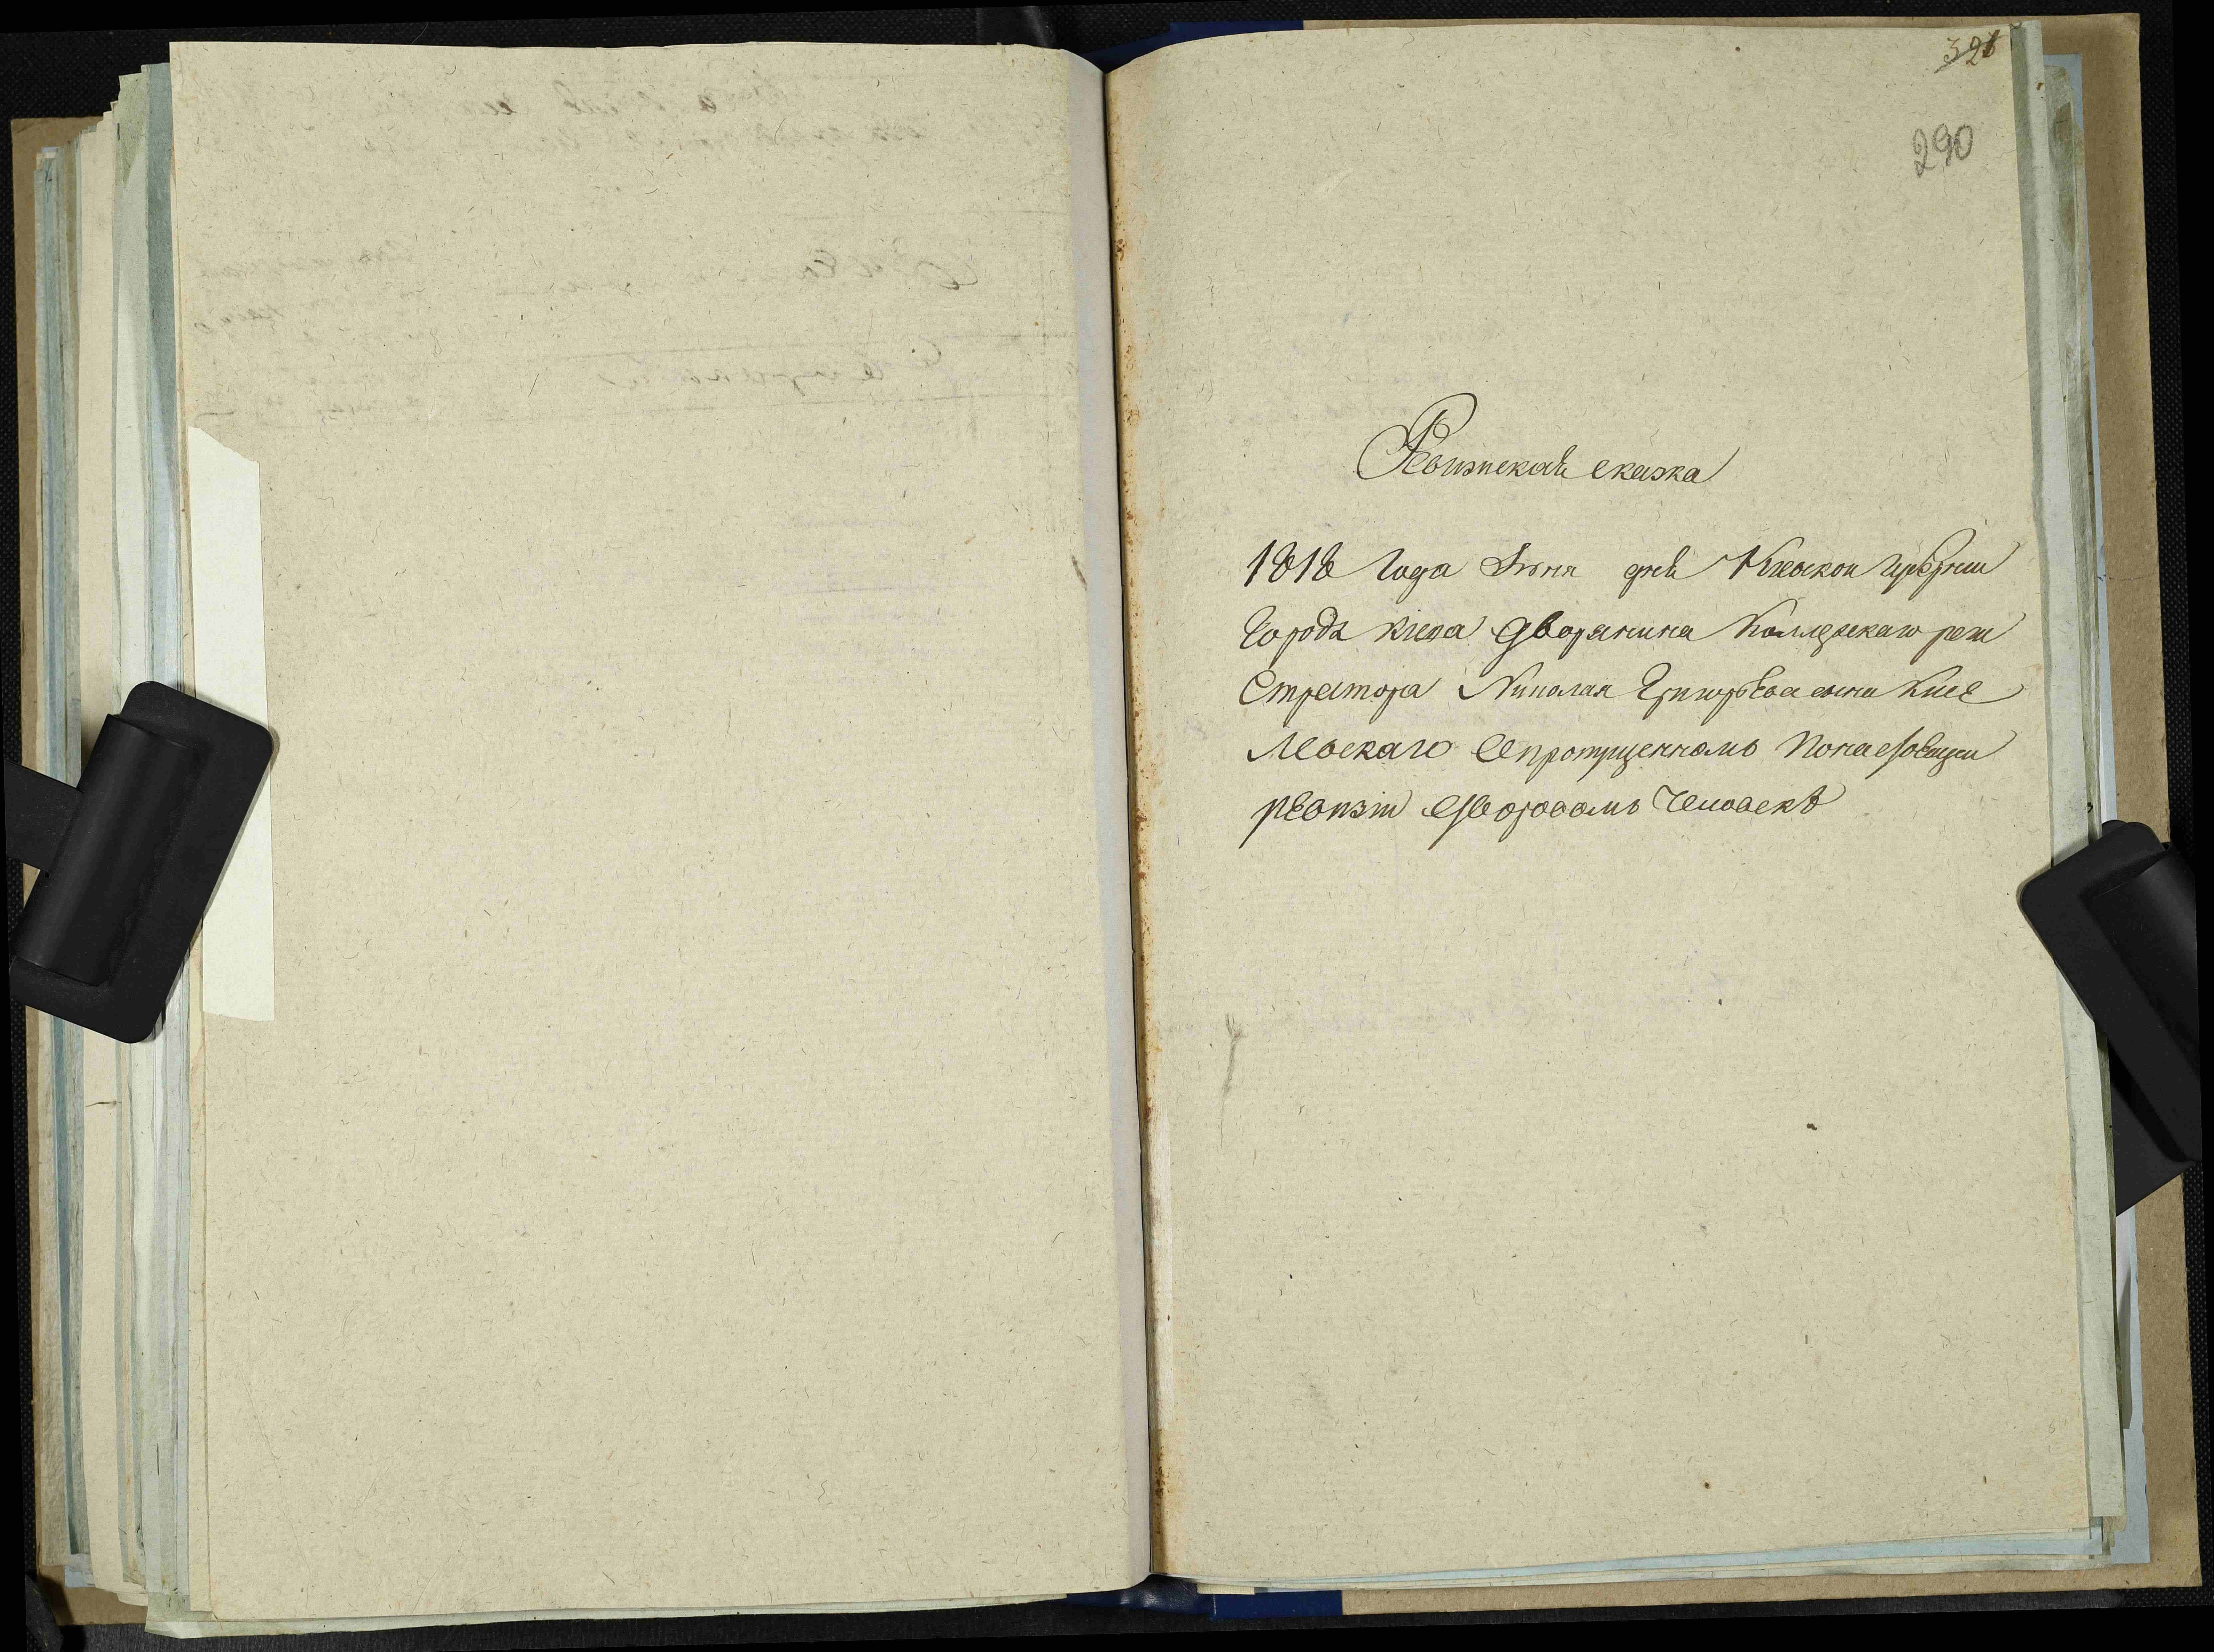 328
290
Ревижская сказка
1818 года Июня дня Киевскои губернии
Города киева дворянина Коллежскаго реги
Стратора Николая Григорьева сына Кисе
Левскаго Опропущенномъ Понаестоящеи
ревизіи Дворовомъ Человекѣ